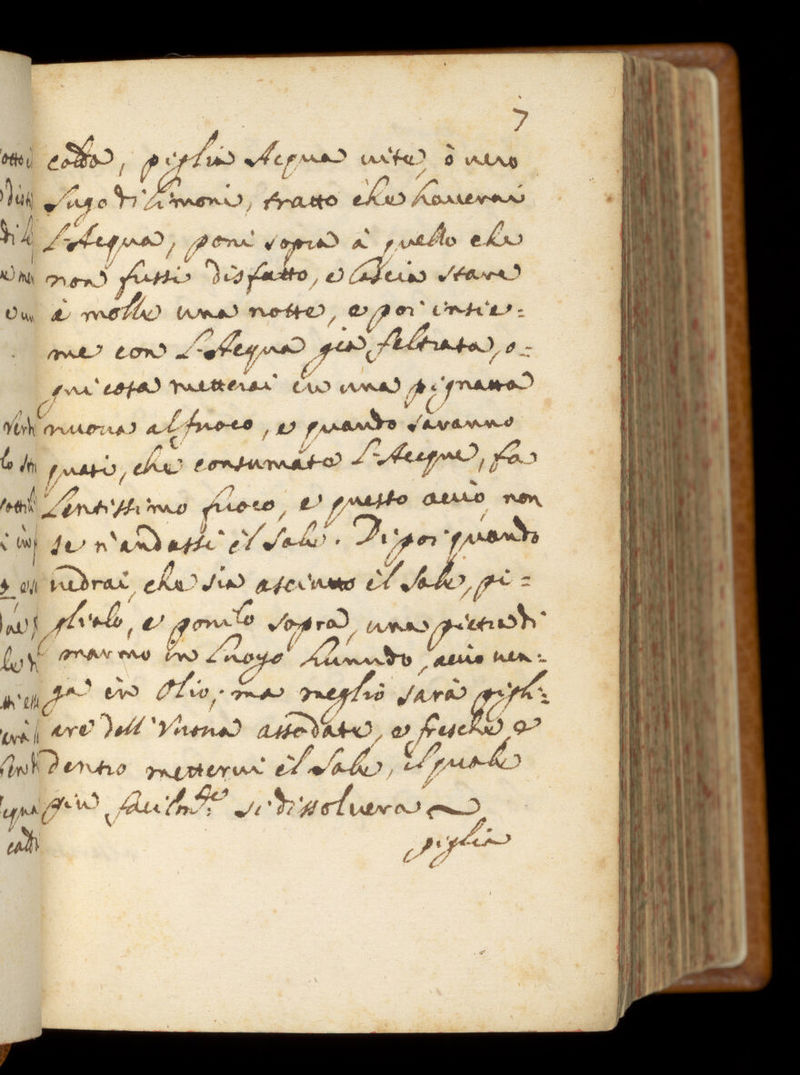 7
calda, piglia Acqua uite, ò uero
Sugo di limoni, tratto che hauerai
L'Acqua, poni sopra à quello che
non fussi disfatto, e lascia stare
à molle una notte, e poi insie=
me con L'Acqua gia feltrata, o=
gni cosa metterai in una pignatta
nuoua al fuoco, e quando saranno
quasi, che consumate L'Acque, fa
Lentissimo fuoco, e questo acciò, non
se n'andassi il Sale. Di poi quando
uedrai, che sia asciutto il Sale, pi=
glialo, e ponilo sopra, una pietra di
marmo in Luogo Humido, acciò uen=
ga in Olio; ma meglio sarà pigli=
are dell'Vuoua assodate, e fresche, e
dentro metterui il Sale, il quale
piu facilm.te si dissoluera
piglia